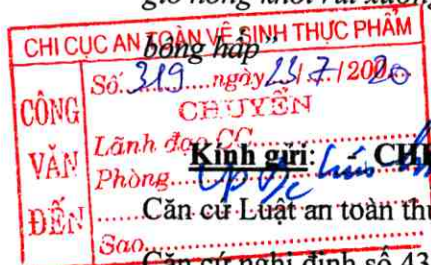 bóng hấp"
CHI CỤC AN TOÀN VỆ SINH THỰC PHẨM
CÔNG VĂN ĐẾN
Số: 319 ngày 23/7/2020
CHUYỂN
Lãnh đạo CC
Kính gửi: - CHI
Phòng
Căn cứ Luật an toàn thự
Sao
Căn cứ nghị định số 43